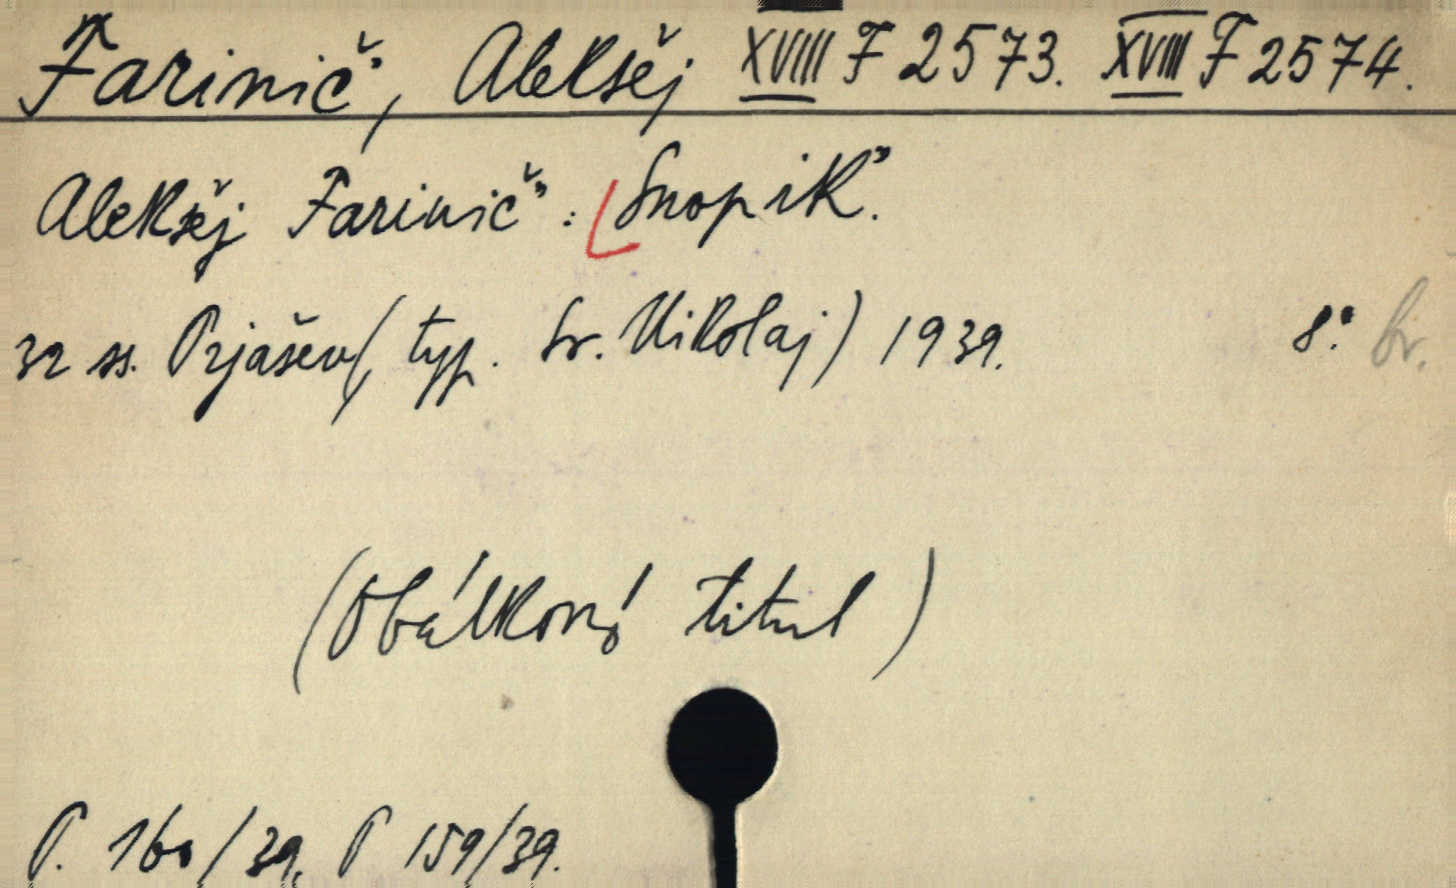 Farinič", Aleksěj XVIII F 2573. XVIII F 2574.
Aleksěj Farinič": Snopik".
32 ss. Prjašev (, typ. Sv. Nikolaj) 1939. 8°. br.
(Obálkový titul)
P. 160/39, P 159/39.